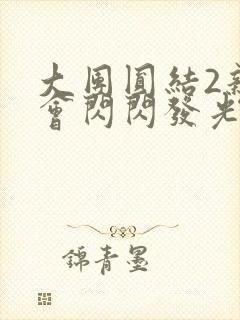 大團圓結2
會閃閃發光
錦青墨